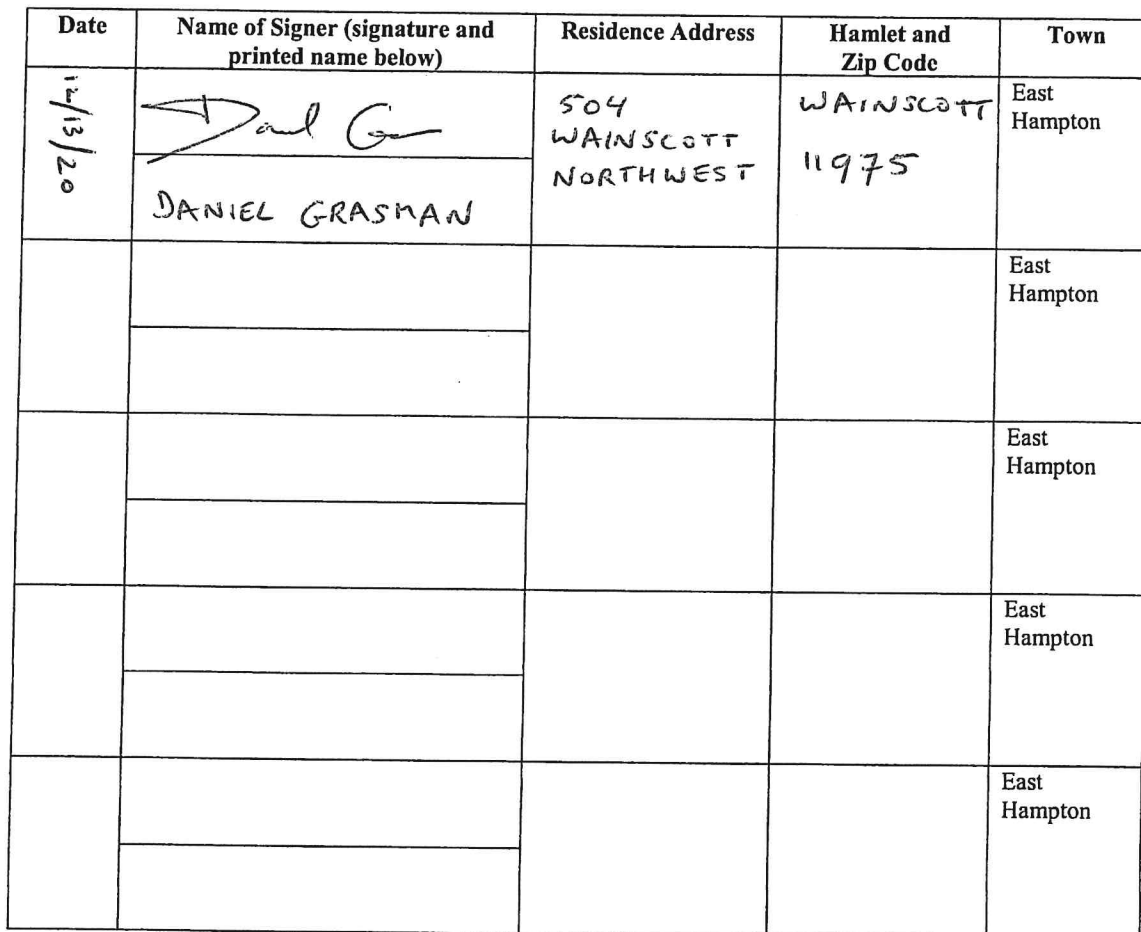 Date
Name of Signer (signature and
printed name below)
Residence Address
Hamlet and
Zip Code
Town
12/13/20
DANIEL GRASMAN
504
WAINSCOTT
NORTHWEST
WAINSCOTT
11975
East
Hampton
East
Hampton
East
Hampton
East
Hampton
East
Hampton